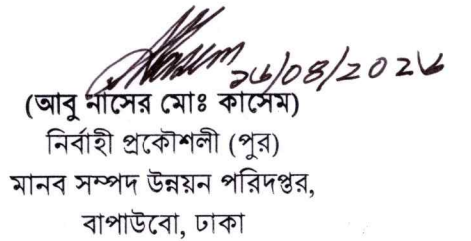 ২৬/০৪/২০২৬
(আবু নাসের মোঃ কাসেম)
নির্বাহী প্রকৌশলী (পুর)
মানব সম্পদ উন্নয়ন পরিদপ্তর,
বাপাউবো, ঢাকা